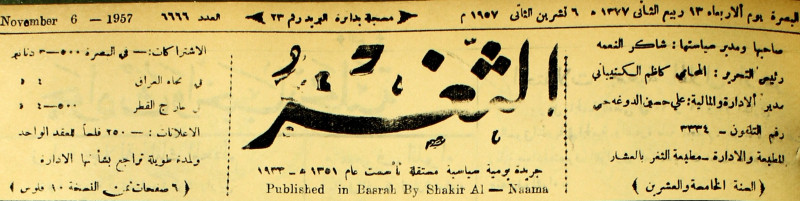 البصرة يوم الاربعاء ١٣ ربيع الثاني ١٣٧٧ ه ٦ تشرين الثاني ١٩٥٧ م
مسجلة بدائرة البريد رقم ٢٣
العدد ٦٦٦٦
November 6 — 1957
صاحبها ومدير سياستها : شاكر النعمه
رئيس التحرير : المحامي كاظم الكشيباني
مدير الادارة والمالية : علي حسين الدوغه جي
رقم التلفون - ٣٣٣٤
المطبعة والادارة - مطبعة الثغر بالعشار
( السنة الخامسة والعشرين )
الثغر
جريدة يومية سياسية مستقلة تأسست عام ١٣٥١ ه - ١٩٣٣
Published in Basrah By Shakir Al — Naama
الاشتراكات :- في البصرة ٥٠٠-٣ دنانير
في نحاء العراق ٤ ٥
في خارج القطر ٥٠٠-٤ ٥
الاعلانات :- ٢٥٠ فلساً للعقد الواحد
ولمدة طويلة تراجع بشأنها الادارة
( ٦ صفحات ثمن النسخة ١٠ فلوس )